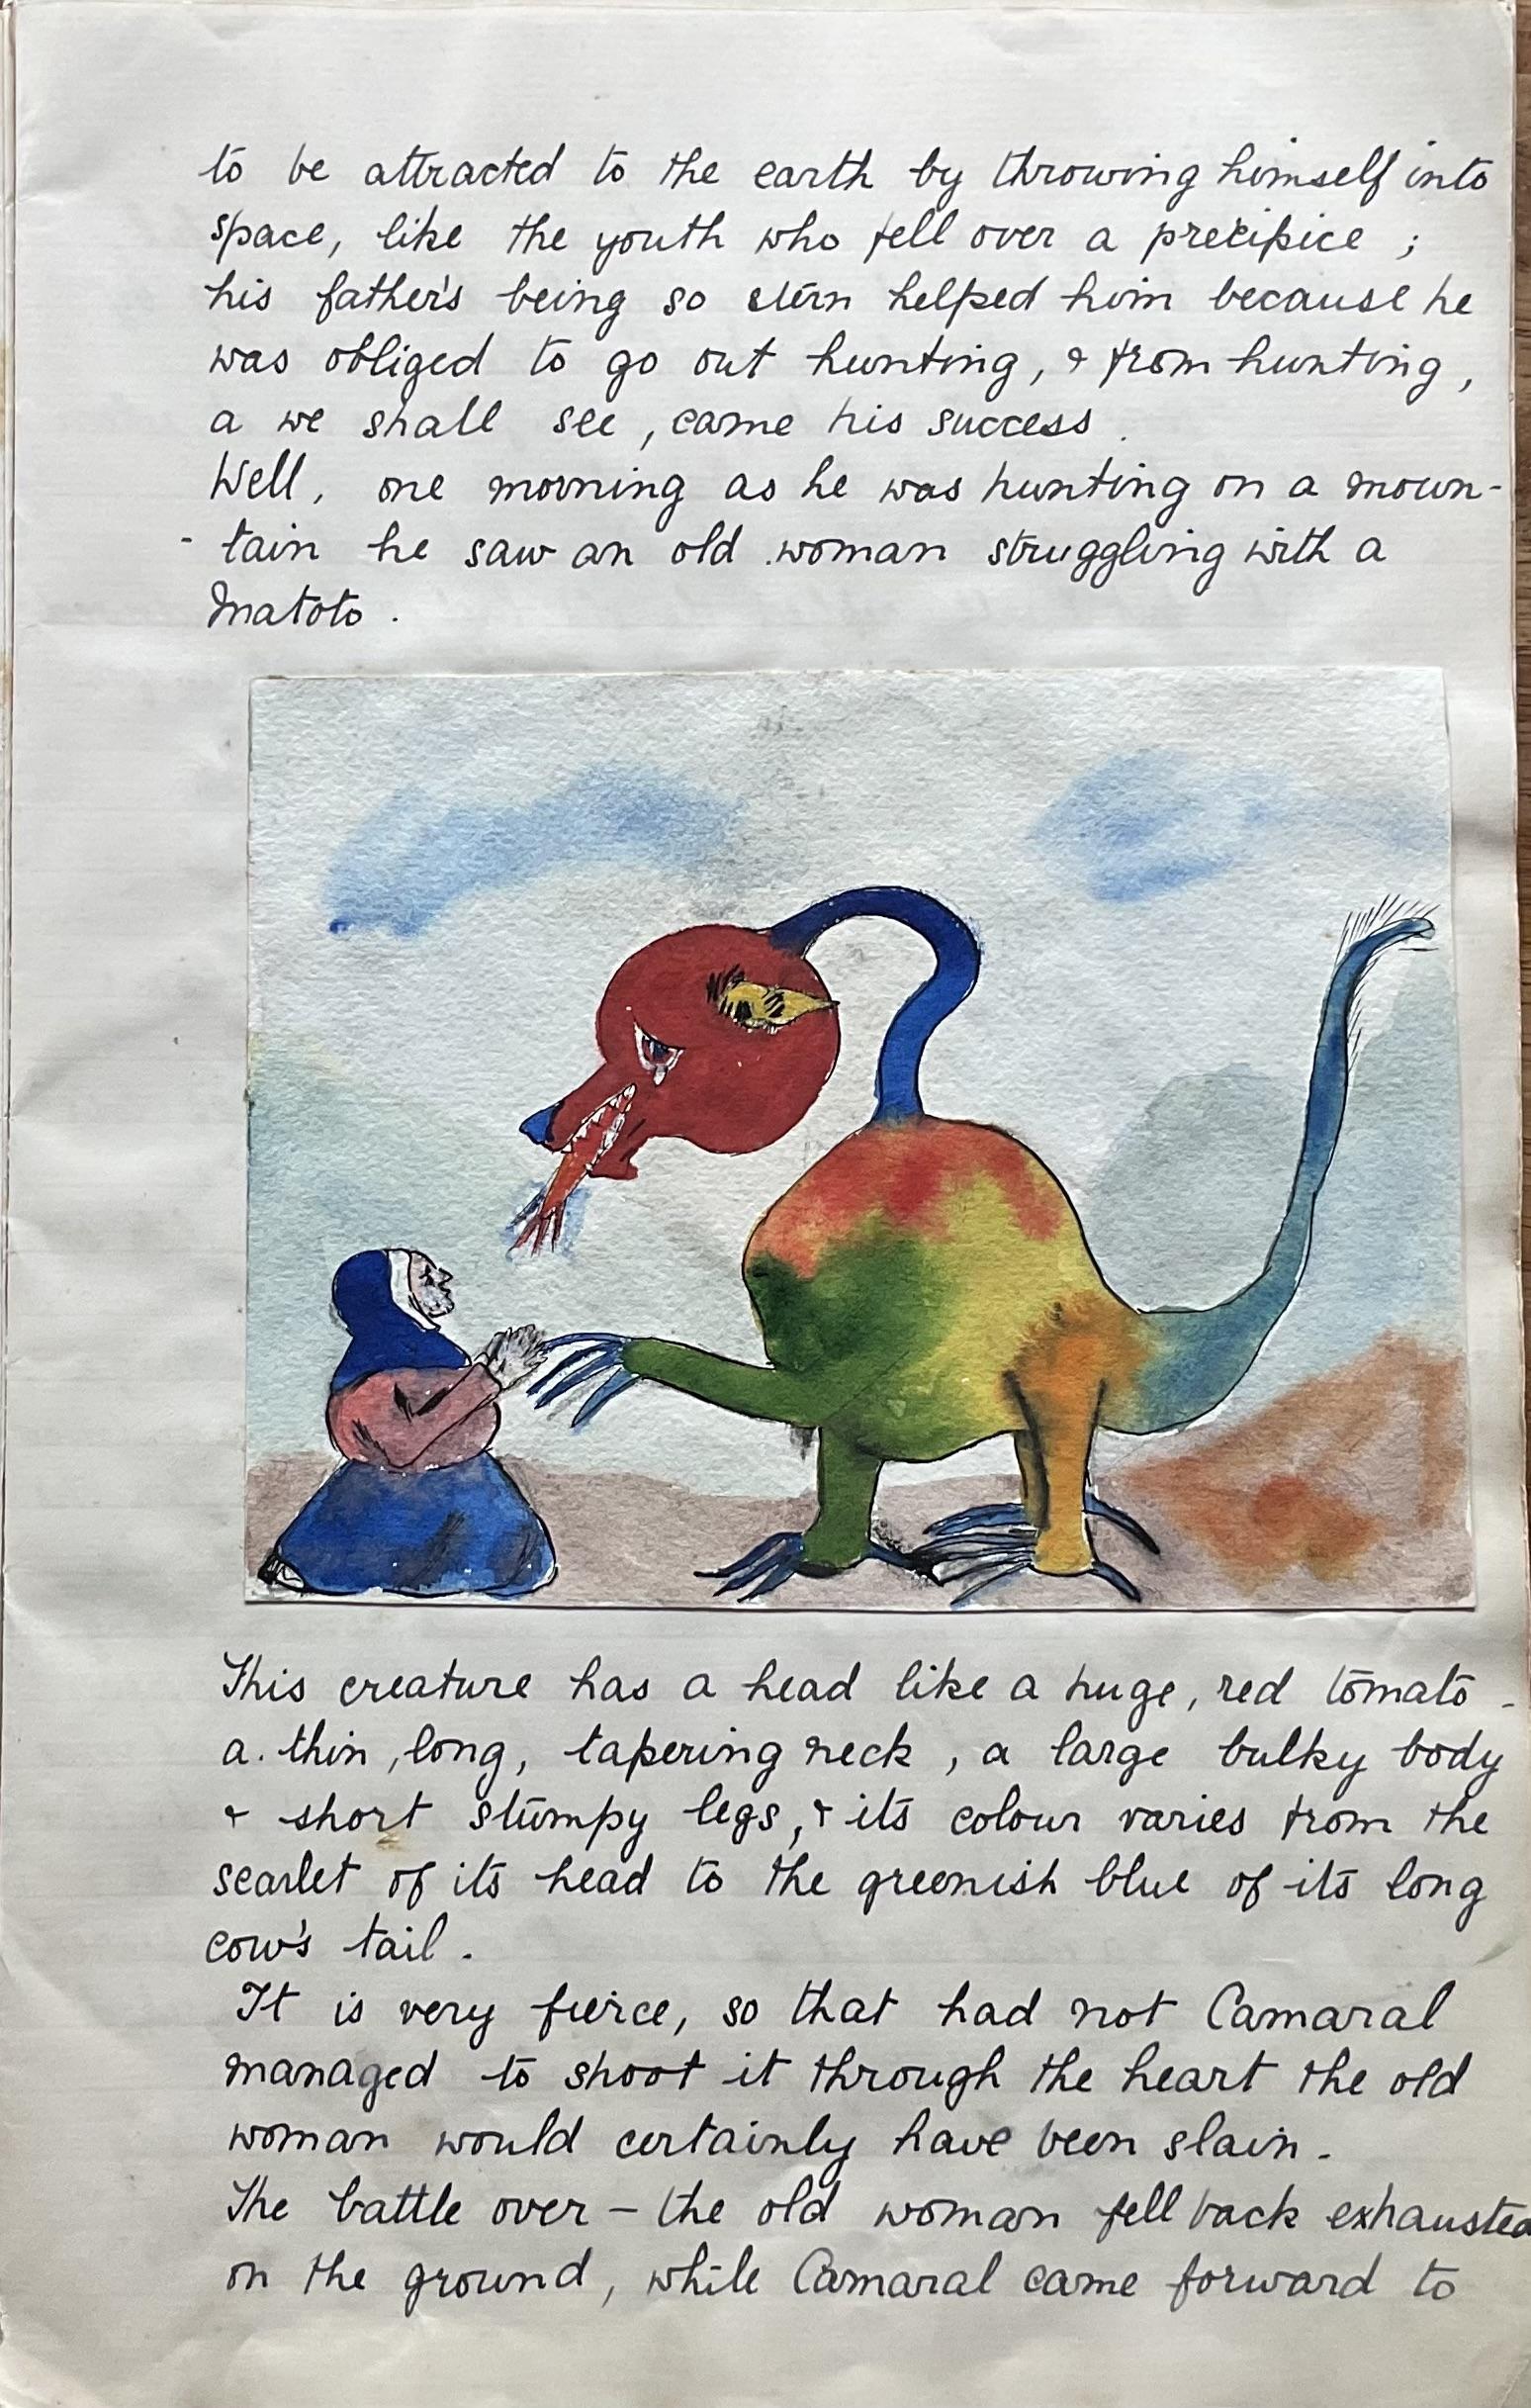 to be attracted to the earth by throwing himself into
space, like the youth who fell over a precipice ;
his father's being so stern helped him because he
was obliged to go out hunting, & from hunting,
a we shall see, came his success.
Well, one morning as he was hunting on a moun-
- tain he saw an old woman struggling with a
Matoto.
This creature has a head like a huge, red tomato -
a thin, long, tapering neck, a large bulky body
& short stumpy legs, & its colour varies from the
scarlet of its head to the greenish blue of its long
cow's tail.
It is very fierce, so that had not Camaral
managed to shoot it through the heart the old
woman would certainly have been slain.
The battle over - the old woman fell back exhausted
on the ground, while Camaral came forward to